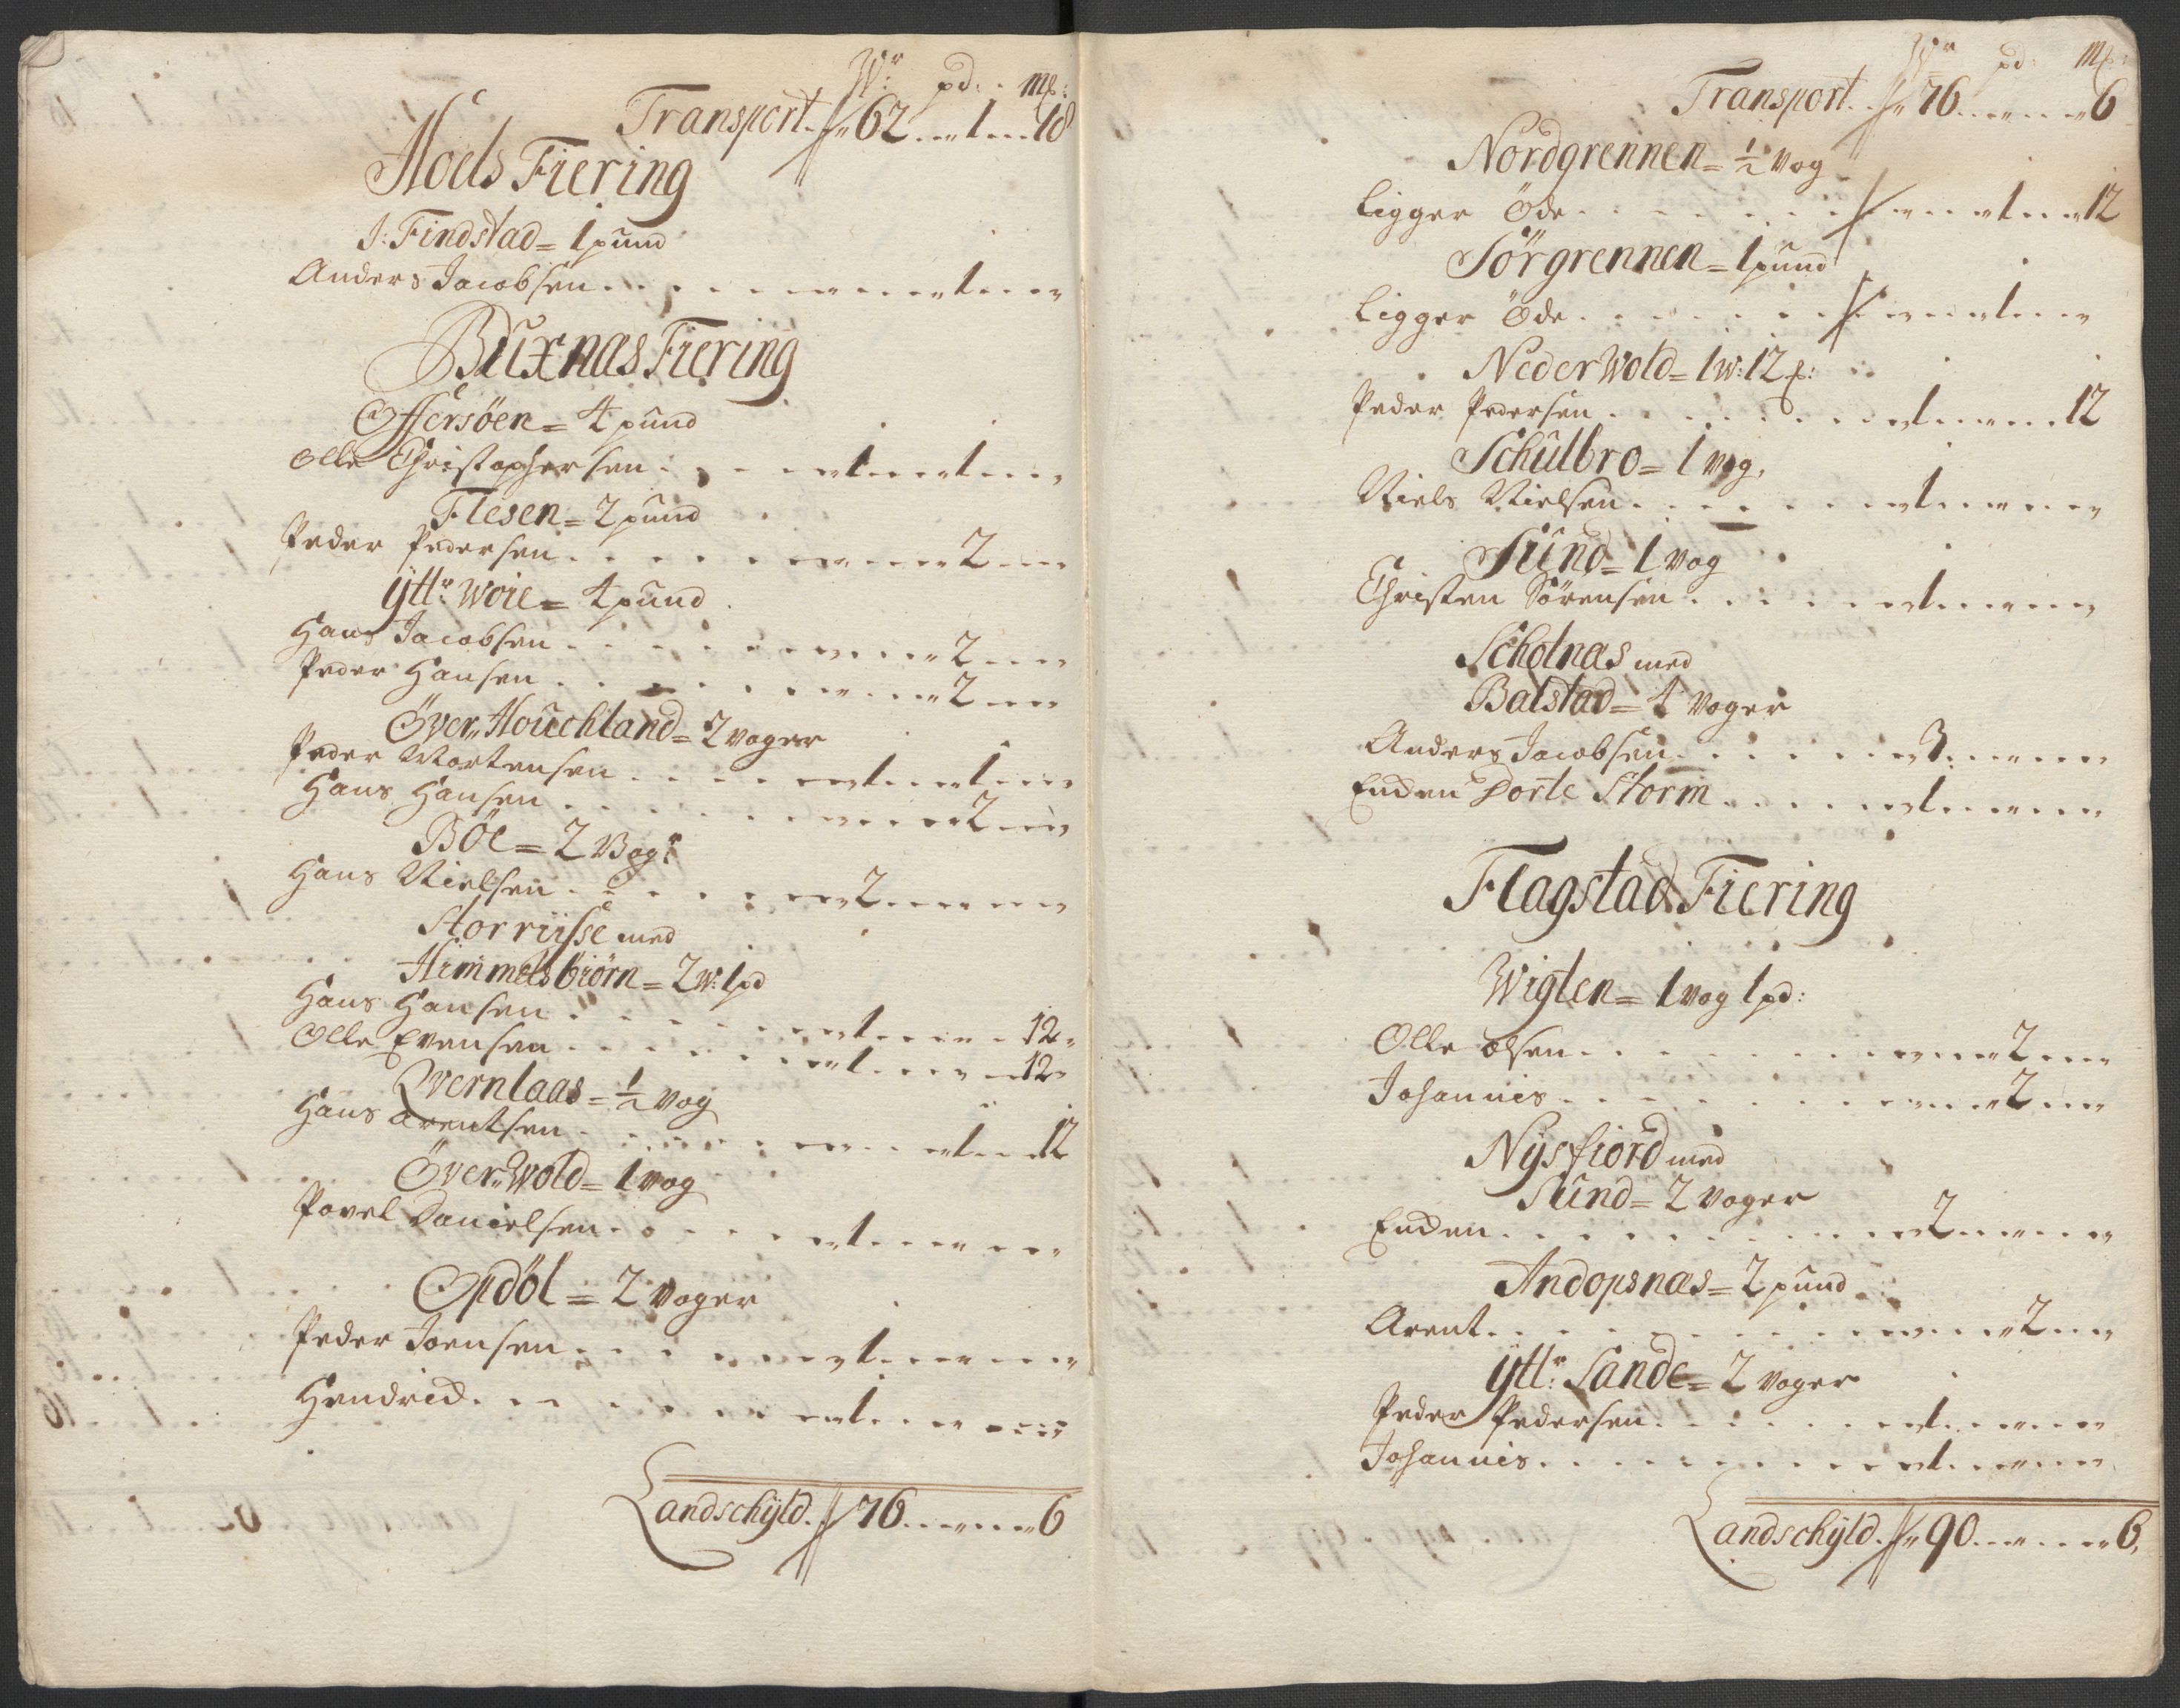 Wr: pd: m(:
Transport. 62 . . 1 . . 18
Hoels Fiering
I: Findstad = 1 pund
Anders Jacobsen . . . . . 1 . .
Buxnas Fiering
Offersöen = 4 pund
Olle Christophersen . . . 1 . . 1 . .
Flesen = 2 pund
Peder Pedersen . . . . . 2 . .
Ÿttr: Woie = 4 pund
Hans Jacobsen . . . . . 2 . .
Peder Hansen . . . . . 2 . .
Över Houchland = 2 voger
Peder Mortensen . . . . 1 . . 1 . .
Hans Hansen . . . . . 2 . .
Böe = 2 Vogr
Hans Nielsen . . . . 2 . . . .
Storriisse med
Himmelsbiörn = 2 W: 1 pd
Hans Hansen . . . . 1 . . . . 12
Olle Evensen . . . . 1 . . . . 12
Qvernlaas = ½ Vog
Hans Arentsen . . . . . 1 . . 12
Över Wold = 1 Vog
Povel Danielsen . . . . 1 . . . .
Opdöl = 2 Voger
Peder Joensen . . . . 1 . . . .
Hendrich . . . . 1 . . . .
Landschÿld . 76 . . . . 6
Wr pd: m(:
Transport . . 76 . . . . 6
Nordgrennen = ½ Vog
Ligger Öde . . . . . 1 . . 12
Sörgrennen = 1 pund
Ligger Öde . . . . . 1 . .
Neder Wold = 1 W: 12
Peder Pedersen . . . . 1 . . . . 12
Schulbro = 1 Vog
Niels Nielsen . . . . 1 . . . .
Sund = 1 Vog
Christen Sörensen . . . . 1 . . . .
Scholnas med
Balstad = 4 Voger
Anders Jacobsen . . . . 3 . . . .
Encken Dorte Storm . . . . 1 . . . .
Flagstad Fiering
Wigten = 1 Vog 1 pd:
Olle Olsen . . . . . 2 . .
Johannis . . . . . 2 . .
Nÿsfiord med
Sund = 2 Voger
Encken . . . . 2 . . . .
Andopsnas = 2 pund
Arent . . . . . 2 . .
Ÿttr: Sande = 2 Voger
Peder Pedersen . . . . 1 . . . .
Johannis . . . . 1 . . . .
Landschÿld . 90 . . . . 6